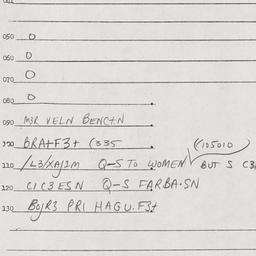 050 0
060 0
070 0
080 0
090 M3R VELN BENC+N
BRA+F3+ (335 (105010
110 /L3/XAJ1M Q-S TO WOMEN BUT S C3
120 C1C3ESN Q-S FARBA.SN
130 BOJR3 PRI HAGU.F3+